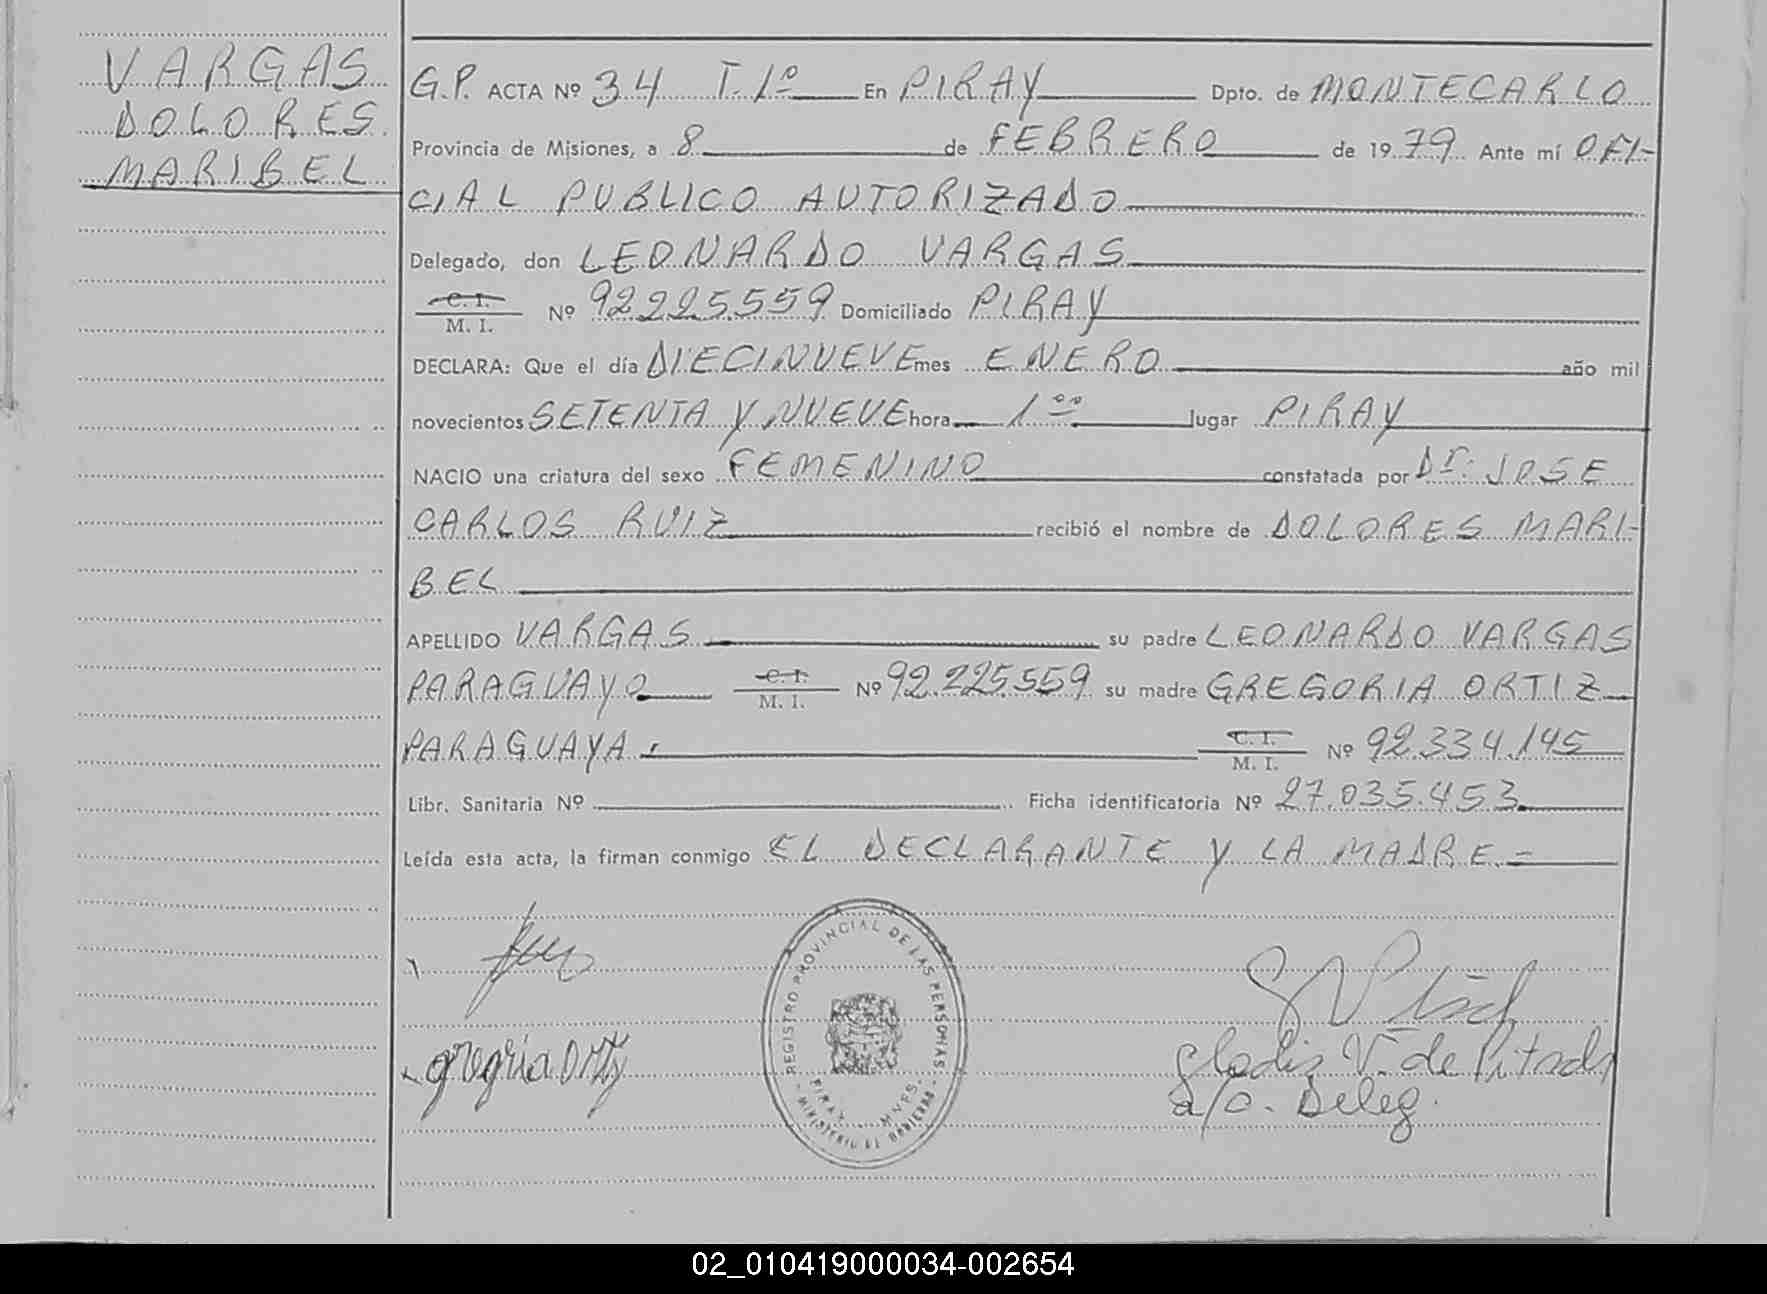 VARGAS
DOLORES
MARIBEL
G.P. ACTA Nº 34 T.1º En PIRAY Dpto. de MONTECARLO
Provincia de Misiones, a 8 de FEBRERO de 1979 Ante mí OFI-
CIAL PUBLICO AUTORIZADO
Delegado, don LEONARDO VARGAS
C. I.
M. I. Nº 92.225.559 Domiciliado PIRAY
DECLARA: Que el día DIECINUEVE mes ENERO año mil
novecientos SETENTA Y NUEVE hora 1 ºº lugar PIRAY
NACIO una criatura del sexo FEMENINO constatada por Dr. JOSE
CARLOS RUIZ recibió el nombre de DOLORES MARI-
BEL
APELLIDO VARGAS su padre LEONARDO VARGAS
PARAGUAYO C. I. M. I. Nº 92.225.559 su madre GREGORIA ORTIZ
PARAGUAYA. C. I. M. I. Nº 92.334.145
Libr. Sanitaria Nº Ficha identificatoria Nº 27.035.453
Leída esta acta, la firman conmigo EL DECLARANTE Y LA MADRE.=
REGISTRO PROVINCIAL DE LAS PERSONAS
PIRAY MNES.
- MINISTERIO DE GOBIERNO -
grogria Ortiz
Gladis V. de
a/c. Deleg.
02_010419000034-002654